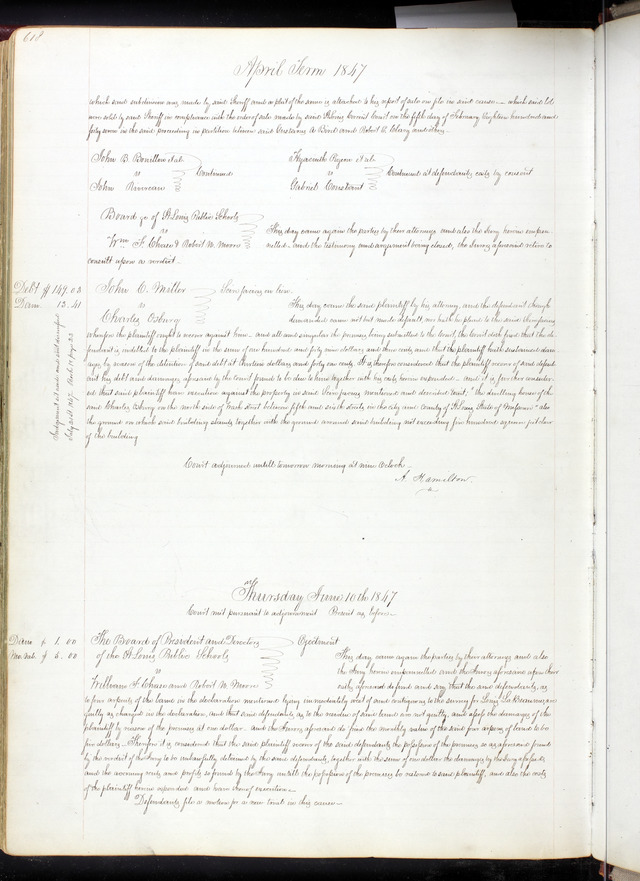 618
April Term 1847
which said subdivision was made by said Sheriff and a plat of the same is attached to his report of sale on file in said cause — which said lots
were sold by said Sheriff in compliance with the order of sale made by said St Louis Circuit Court on the fifth day of February Eighteen hundred and
forty seven in the said proceeding in partition between said Gustavus A Bird and Robert and others.
John B. Bouillon et al
vs Continued
John
Hyacinth et al
vs Continued at defendants costs by consent
Gabriel Constant
Board &c of St Louis Public Schools
vs
Wm F. Chase & Robert M. Moore
This day came again the parties by their attorneys and also the Jury herein
and the testimony and argument being closed, the Jurors aforesaid retire to
consult upon a verdict.
Debt $149.03
Dam. 13.41
John C. Miller Scire facias on lien
vs
Charles Osburg
This day came the said plaintiff by his attorney, and the defendant though
demanded came not but made default, nor hath he plead to the said Scire facias
wherefore the plaintiff ought to recover against him and all and singular the premises being submitted to the court, the court doth find that the de-
fendant is indebted to the plaintiff in the sum of one hundred and forty nine dollars and three cents, and that the plaintiff hath sustained dam-
ages by reason of the detention of said debt at thirteen dollars and forty one cents. It is therefore considered that the plaintiff recover of said defend-
ant his debt and damages aforesaid by the court found to be due to him together with his costs herein expended. and it is further consider-
ed that said plaintiff have execution against the property in said Scire facias mentioned and described to wit; "the dwelling house of the
said Charles Osburg on the north side of street between fifth and sixth streets in the city and county of St Louis State of Missouri" also
the ground on which said building stands together with the ground around said building not exceeding five hundred square feet clear
of the building
Court adjourned untill tomorrow morning at nine Oclock
A. Hamilton
Thursday June 10th 1847
Court met pursuant to adjournment Present as before
Dam $ 1.00
$ 5.00
The Board of President and Directors Ejectment
of the St Louis Public Schools
vs
William F. Chase and Robert M. Moore
This day came again the parties by their attorneys and also
the Jury herein and the Jurors aforesaid upon their
oaths aforesaid do find and say that the said defendants, as
to four arpents of the land in the declaration mentioned lying immediately west of and contiguous to the survey for Louis
guilty as charged in the declaration, and that said defendants as to the residue of said lands are not guilty, and assess the damages of the
plaintiff by reason of the premises at one dollar. and the Jurors aforesaid do find the monthly value of the said four arpens of land to be
five dollars. Therefore it is considered that the said plaintiff recover of the said defendants the possession of the premises so as aforesaid found
by the verdict of the Jury to be unlawfully detained by the said defendants, together with the sum of one dollar the damages by the Jury assessed
and the accruing rents and profits so found by the Jury untill the possession of the premises be restored to said plaintiff, and also the costs
of the plaintiff herein expended and have thereof execution
Defendants file a motion for a new trial in this cause